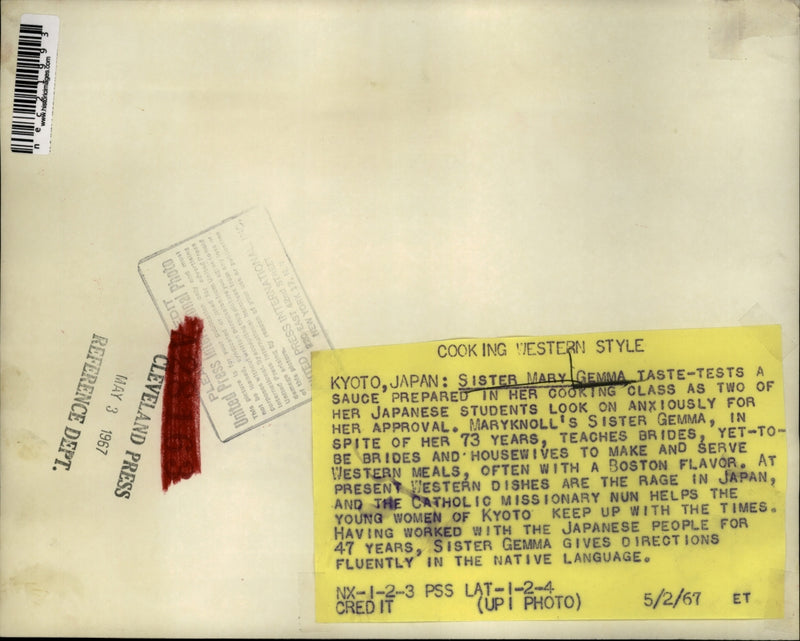 nec21993
www.historicimages.com
UNITED PRESS INTERNATIONAL, INC.
220 EAST 42ND STREET
NEW YORK 17, N.Y.
CLEVELAND PRESS
MAY 3 1967
REFERENCE DEPT.
COOKING WESTERN STYLE
KYOTO, JAPAN: SISTER MARY GEMMA TASTE-TESTS A
SAUCE PREPARED IN HER COOKING CLASS AS TWO OF
HER JAPANESE STUDENTS LOOK ON ANXIOUSLY FOR
HER APPROVAL. MARYKNOLL'S SISTER GEMMA, IN
SPITE OF HER 73 YEARS, TEACHES BRIDES, YET-TO-
BE BRIDES AND HOUSEWIVES TO MAKE AND SERVE
WESTERN MEALS, OFTEN WITH A BOSTON FLAVOR. AT
PRESENT WESTERN DISHES ARE THE RAGE IN JAPAN,
AND THE CATHOLIC MISSIONARY NUN HELPS THE
YOUNG WOMEN OF KYOTO KEEP UP WITH THE TIMES.
HAVING WORKED WITH THE JAPANESE PEOPLE FOR
47 YEARS, SISTER GEMMA GIVES DIRECTIONS
FLUENTLY IN THE NATIVE LANGUAGE.
NX-1-2-3 PSS LAT-1-2-4
CREDIT (UPI PHOTO) 5/2/67 ET